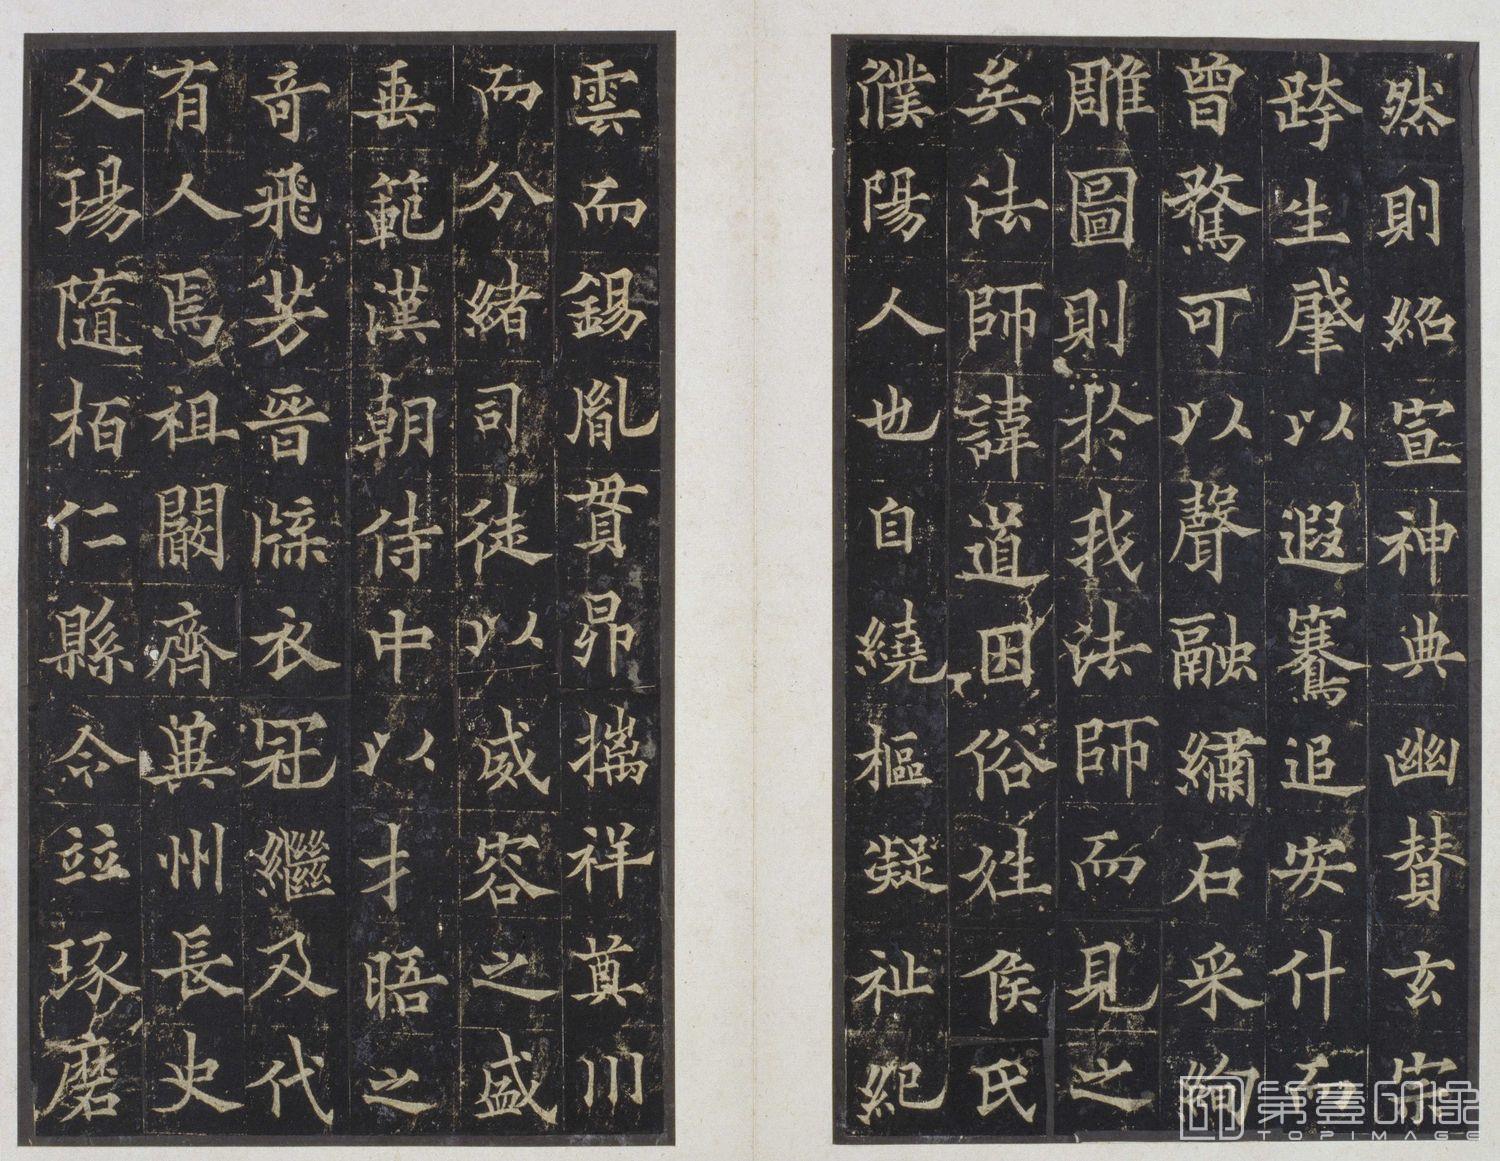 然則紹宣神典幽賛玄宗
跨生肇以遐騫追安什而
曾騖可以聲融繡石采絢
雕圖則於我法師而見之
矣法師諱道因俗姓侯氏
濮陽人也自繞樞凝祉紀
雲而錫胤貫昴摛祥奠川
而分緒司徒以威容之盛
垂範漢朝侍中以才晤之
奇飛芳晉牒衣冠継及代
有人焉祖闞齊冀州長史
父瑒隨栢仁縣令竝琢磨
第壹印像
TOPIMAGE